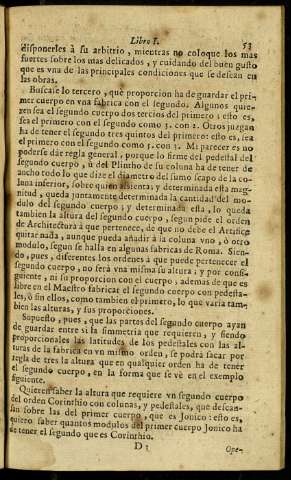 Libro I. 53
disponerles à su arbitrio, mientras no coloque los mas
fuertes sobre los mas delicados, y cuidando del buen gusto
que es vna de las principales condiciones que se desean en
las obras.
Buscase lo tercero, que proporcion ha de guardar el pri-
mer cuerpo en vna fabrica con el segundo. Algunos quie-
ren sea el segundo cuerpo dos tercios del primero: esto es,
sea el primero con el segundo como 3. con 2. Otros juzgan
ha de tener el segundo tres quintos del primero: esto es, sea
el primero con el segundo como 5. con 3. Mi parecer es no
poderse dàr regla general, porque lo firme del pedestal del
segundo cuerpo, ù del Plintho de su coluna ha de tener de
ancho todo lo que dize el diametro del sumo scapo de la co-
luna inferior, sobre quien assienta; y determinada esta mag-
nitud, queda juntamente determinada la cantidad del mo-
dulo del segundo cuerpo; y determinada esta, lo queda
tambien la altura del segundo cuerpo, segun pide el orden
de Architectura à que pertenece, de que no debe el Artifice
quitar nada, aunque pueda añadir à la coluna vno, ò otro
modulo, segun se halla en algunas fabricas de Roma. Sien-
do, pues, diferentes los ordenes à que puede pertenecer el
segundo cuerpo, no serà vna misma su altura; y por consi-
guiente, ni su proporcion con el cuerpo; ademàs de que es
libre en el Maestro fabricar el segundo cuerpo con pedesta-
les, ò sin ellos, como tambien el primero, lo que varia tam-
bien las alturas, y sus proporciones.
Supuesto, pues, que las partes del segundo cuerpo ayan
de guardar entre si la simmetria que requieren, y siendo
proporcionales las latitudes de los pedestales con las al-
turas de la fabrica en vn mismo orden, se podrà sacar por
regla de tres la altura que en qualquier orden ha de tener
el segundo cuerpo, en la forma que se vè en el exemplo
siguiente.
Quieren saber la altura que requiere vn segundo cuerpo
del orden Corinthio con colunas, y pedestales, que descan-
sin sobre las del primer cuerpo, que es Jonico: esto es,
quiero saber quantos modulos del primer cuerpo Jonico ha
de tener el segundo que es Corinthio.
D 3 Ope-